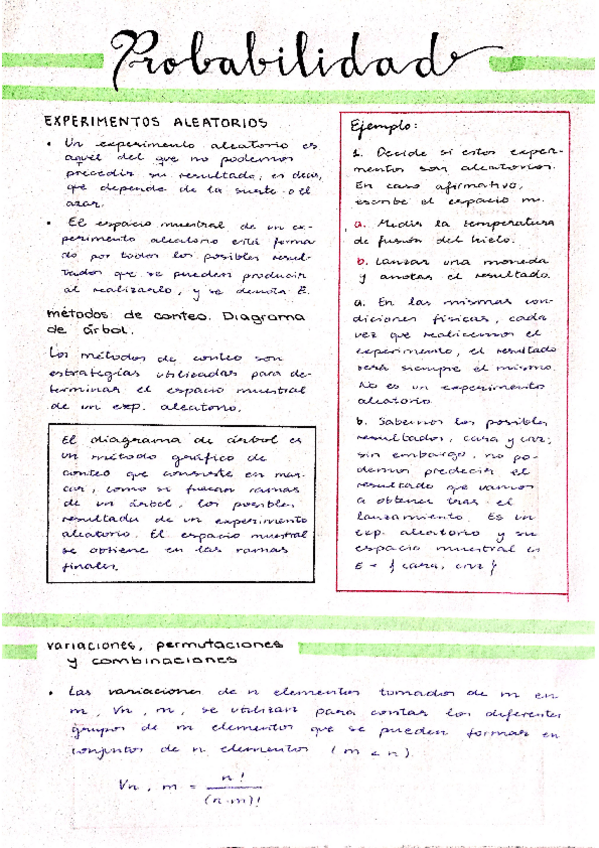 Probabilidad
EXPERIMENTOS ALEATORIOS
• Un experimento aleatorio es
aquel del que no podemos
precedir su resultado, es decir,
que depende de la suerte o el
azar.
• El espacio muestral de un ex-
perimento aleatorio está forma
do por todos los posibles resul-
tados que se pueden producir
al realizarlo, y se denota E.
métodos de conteo. Diagrama
de árbol.
Los métodos de conteo son
estrategias utilizadas para de-
terminar el espacio muestral
de un exp. aleatorio.
El diagrama de árbol es
un método gráfico de
conteo que consiste en mar-
car, como si fueran ramas
de un árbol, los posibles
resultados de un experimento
aleatorio. El espacio muestral
se obtiene en las ramas
finales.
Ejemplo:
1. Decide si estos exper-
mentos son aleatorios.
En caso afirmativo,
escribe el espacio m.
a. Medir la temperatura
de fusión del hielo.
b. Lanzar una moneda
y anotar el resultado.
a. En las mismas con-
diciones físicas, cada
vez que realicemos el
experimento, el resultado
será siempre el mismo.
No es un experimento
aleatorio
b. Sabemos los posibles
resultados, cara y cruz;
sin embargo, no po-
demos predecir el
resultado que vamos
a obtener tras el
lanzamiento. Es un
exp. aleatorio y su
espacio muestral es
E = { cara, cruz }
variaciones, permutaciones
y combinaciones
• Las variaciones de n elementos tomados de m en
m, Vn, m, se utilizan para contar los diferentes
grupos de m elementos que se pueden formar en
conjuntos de n elementos (m < n).
Vn, m = n! / (n-m)!